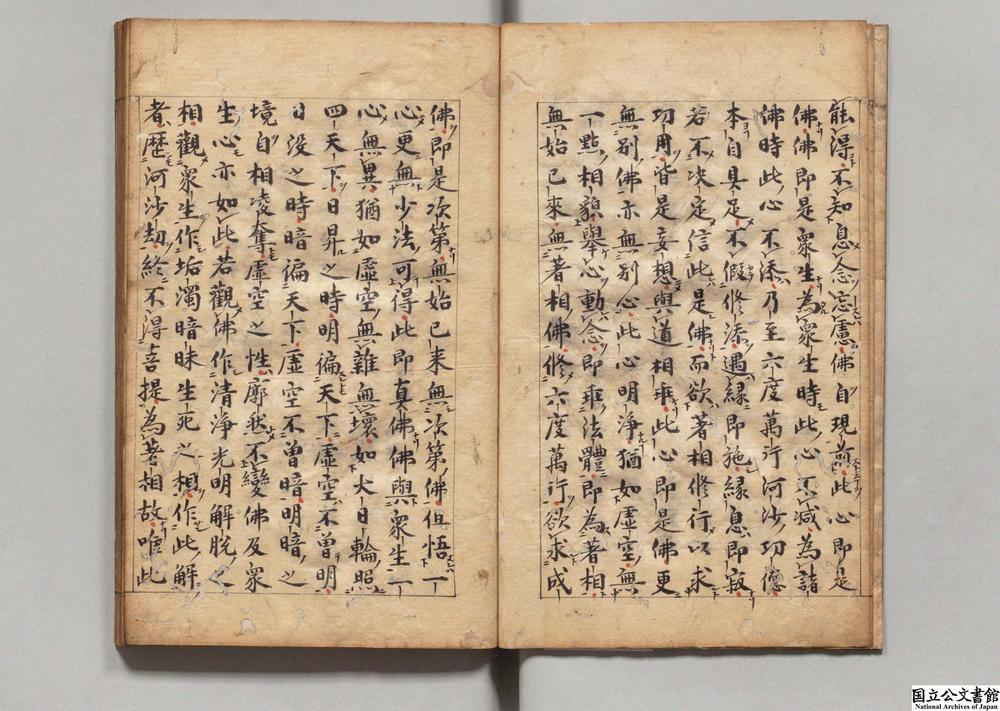 能得不知息念忘慮佛自現前此心即是
佛佛即是衆生為衆生時此心不減為諸
佛時此心不添乃至六度萬行河沙功德
本自具足不假修添遇縁即施縁息即寂
若不决定信此是佛而欲著相修行以求
功用皆是妄想與道相乖此心即是佛更
無別佛亦無別心此心明淨猶如虛空無
一點相貌舉心動念即乖法體即為著相
無始已來無著相佛修六度萬行欲求成
佛即是次第無始已来無次第佛但悟一
心更無少法可得此即真佛佛與衆生一
心無異猶如虛空無雜無壞如大日輪照
四天下日昇之時明徧天下虛空不曾明
日没之時暗徧天下虛空不曾暗明暗之
境自相凌奪虛空之性廓然不變佛及衆
生心亦如此若觀佛作清淨光明解脫之
相觀衆生作垢濁暗昧生死之相作此解
者歴河沙劫終不得菩提為著相故唯此
国立公文書館
National Archives of Japan